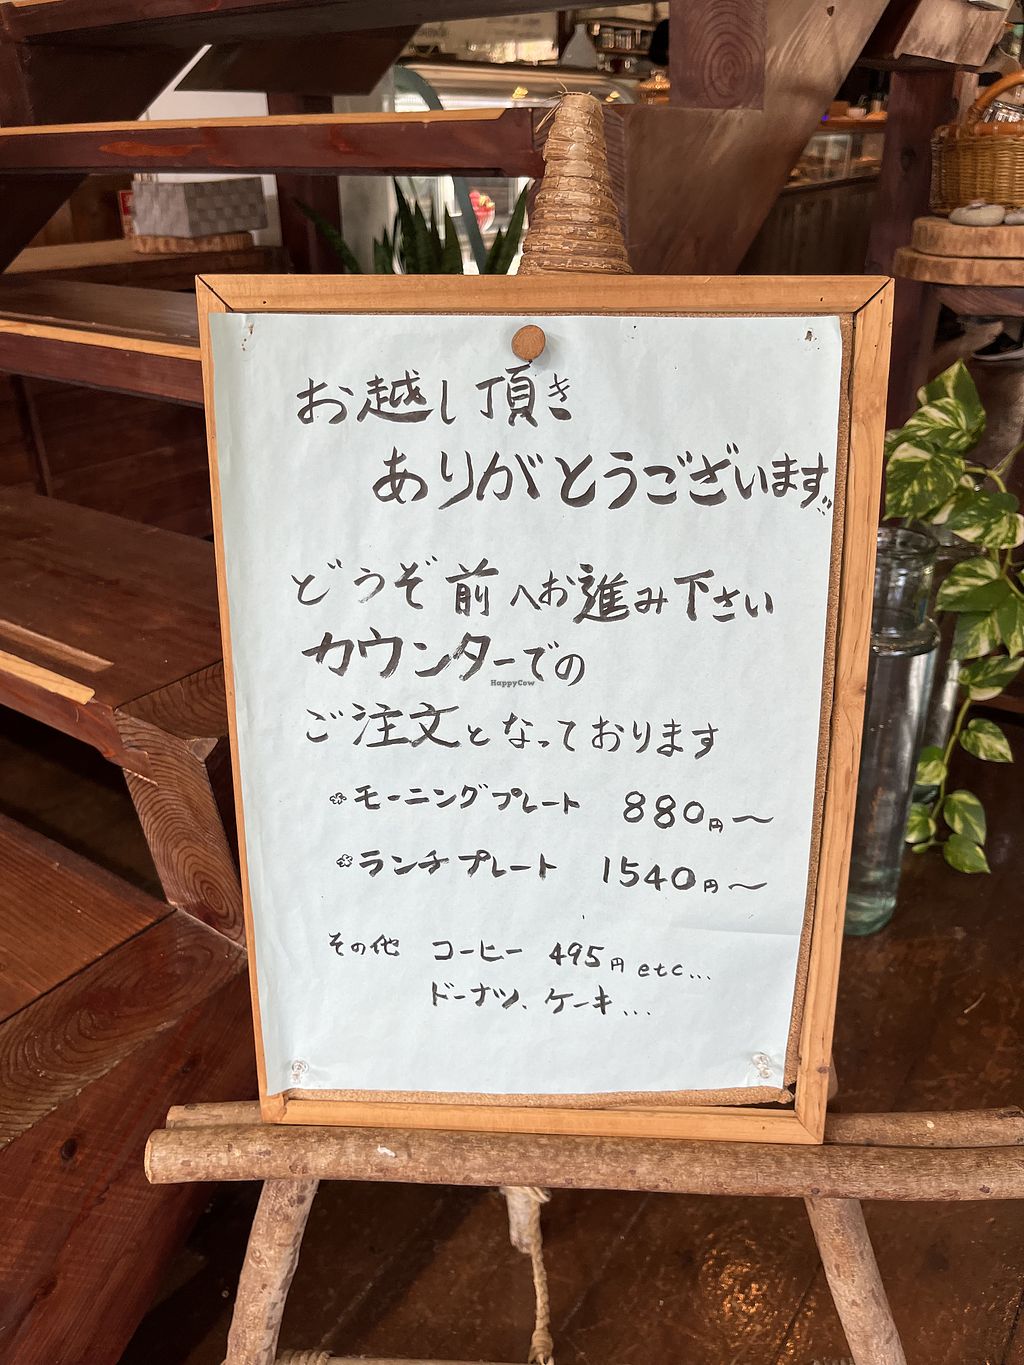 お越し頂き
ありがとうございます!!
どうぞ前へお進み下さい
カウンターでの
HappyCow
ご注文となっております
モーニングプレート 880円〜
ランチプレート 1540円〜
その他 コーヒー 495円 etc...
ドーナツ、ケーキ...